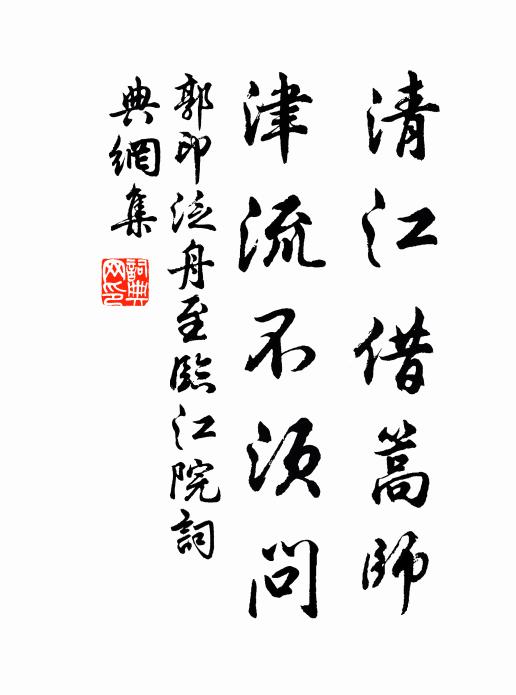 清江借蒿師
津流不須問
郭印泛舟至臨江院詞
典網集
詞典
网印